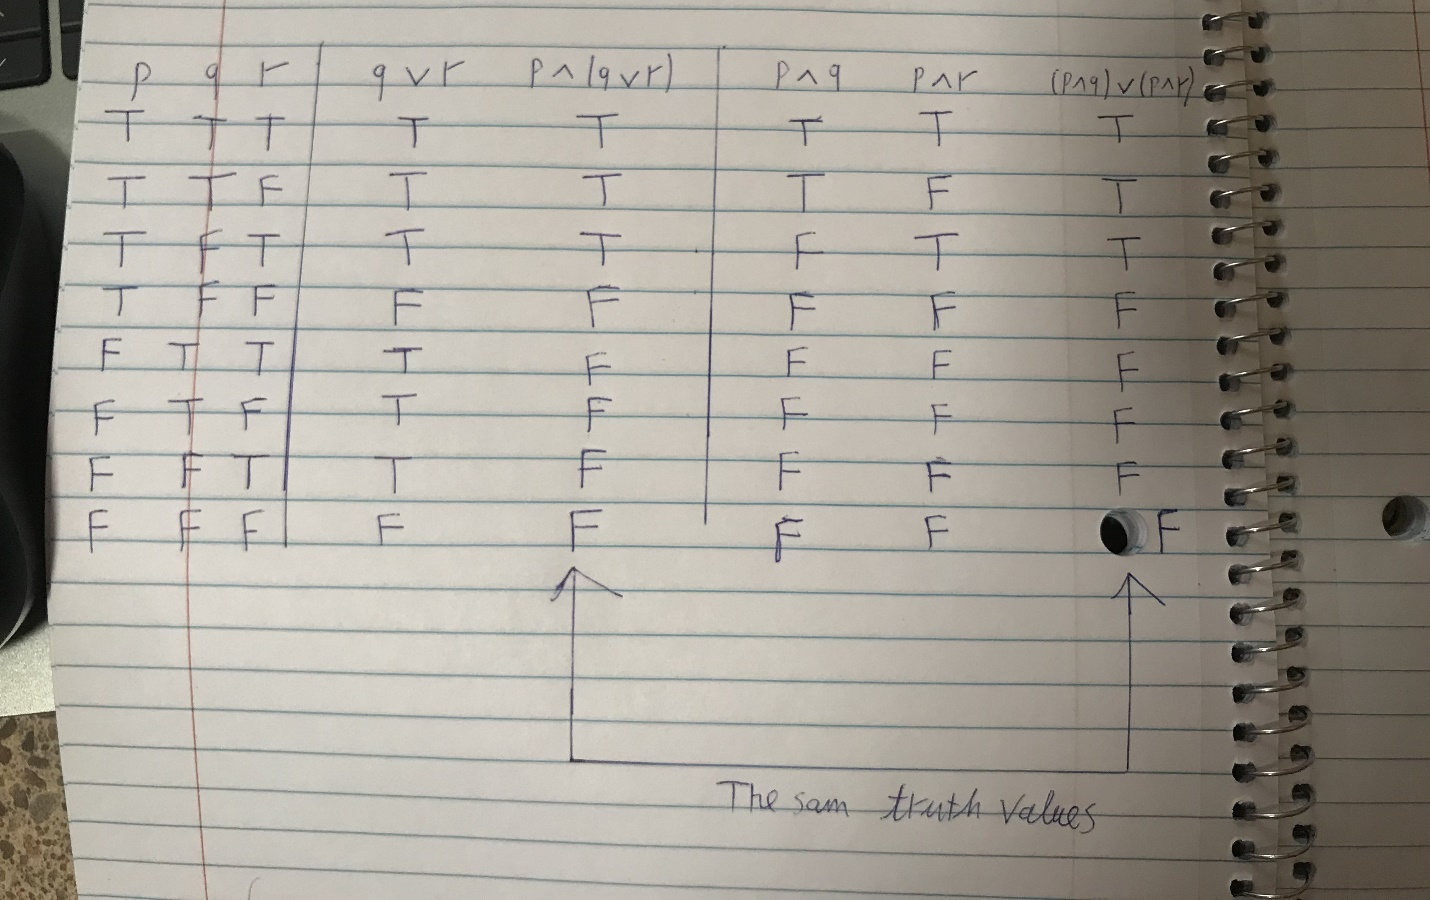 p q r q ∨ r p ∧ (q ∨ r) p ∧ q p ∧ r (p ∧ q) ∨ (p ∧ r)
T T T T T T T T
T T F T T T F T
T F T T T F T T
T F F F F F F F
F T T T F F F F
F T F T F F F F
F F T T F F F F
F F F F F F F F
The sam truth values